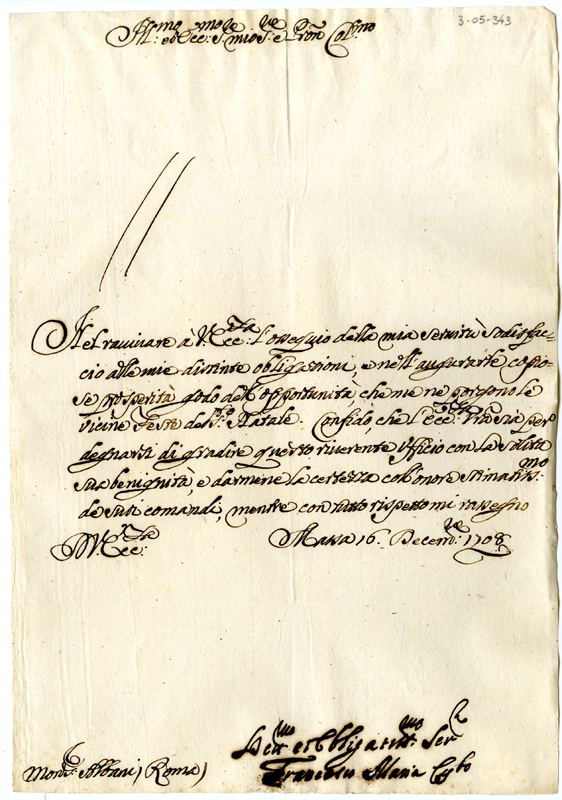 3-05-343
Ill:mo et Ecc:mo S:re mio S:re e Pron Col:mo
Nel ravvivare à V. Ecc:za l'ossequio della mia servitù sodisfac-
cio alle mie distinte obligazioni, e nell'augurarle copio-
se prosperità godo dell'opportunità, che me ne porgono le
vicine Feste del S:to Natale. Confido, che l'Ecc:za Vra sia per
degnarsi di gradire questo riverente Ufficio con la solita
sua benignità, e darmene la certezza coll'onore stimatiss:mo
de suoi comandi, mentre con tutto rispetto mi rassegno
D V. Ecc:za Massa 16 Decem:re 1708
Dev:mo et Obligatiss:mo Ser:r
Francesco Maria Cybo
Mons:r Albani (Roma)